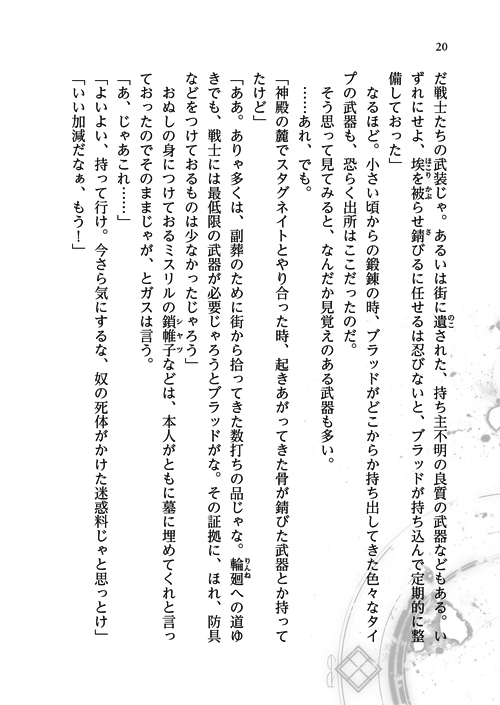 20
だ戦士たちの武装じゃ。あるいは街に遺された、持ち主不明の良質の武器などもある。い
ずれにせよ、埃を被らせ錆びるに任せるは忍びないと、ブラッドが持ち込んで定期的に整
備しておった」
なるほど。小さい頃からの鍛錬の時、ブラッドがどこからか持ち出してきた色々なタイ
プの武器も、恐らく出所はここだったのだ。
そう思って見てみると、なんだか見覚えのある武器も多い。
……あれ、でも。
「神殿の麓でスタグネイトとやり合った時、起きあがってきた骨が錆びた武器とか持って
たけど」
「ああ。ありゃ多くは、副葬のために街から拾ってきた数打ちの品じゃな。輪廻への道ゆ
きでも、戦士には最低限の武器が必要じゃろうとブラッドがな。その証拠に、ほれ、防具
などをつけておるものは少なかったじゃろう」
おぬしの身につけておるミスリルの鎖帷子などは、本人がともに墓に埋めてくれと言っ
ておったのでそのままじゃが、とガスは言う。
「あ、じゃあこれ……」
「よいよい、持って行け。今さら気にするな、奴の死体がかけた迷惑料じゃと思っとけ」
「いい加減だなぁ、もう！」
のこ
ほこり
かぶ
さ
りんね
シャツ